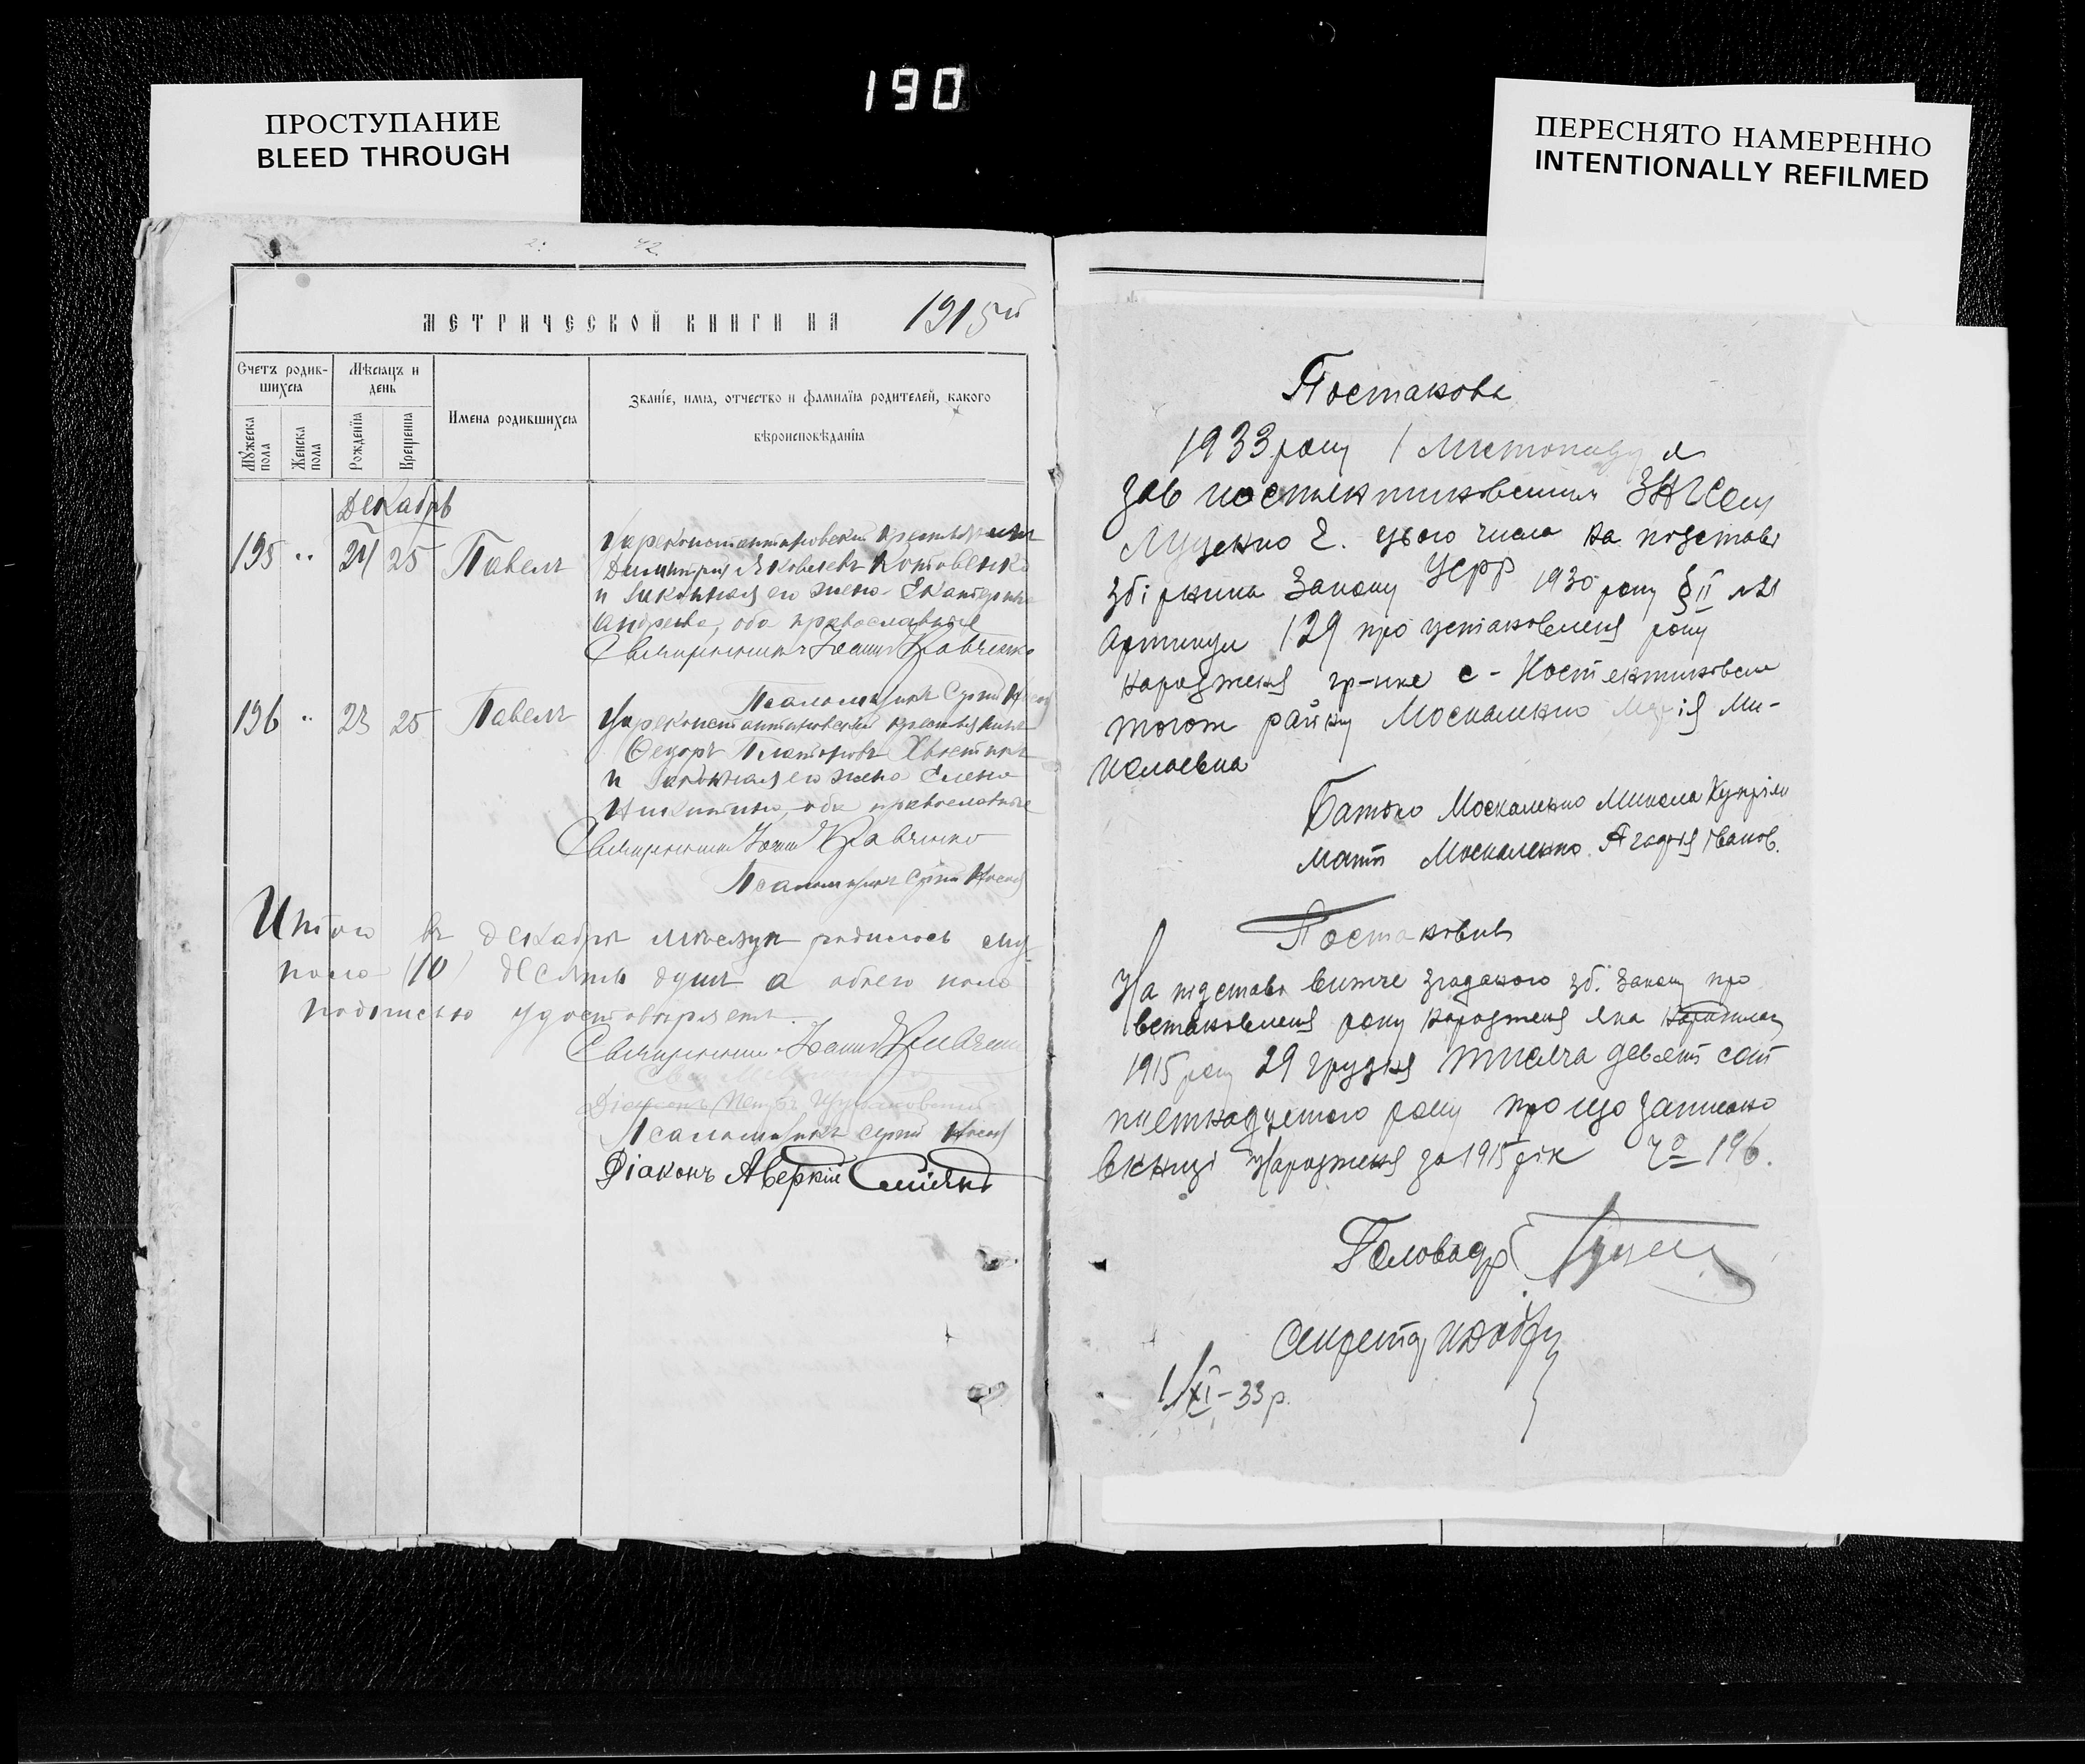 190
ПРОСТУПАНИЕ
BLEED THROUGH
ПЕРЕСНЯТО НАМЕРЕННО
INTENTIONALLY REFILMED
42
МЕТРИЧЕСКОЙ КНИГИ НА 1915й
Счетъ родив-
шихся
Мѣсяцъ и
день
Имена родившихся
Званіе, имя, отчество и фамилія родителей, какого
вѣроисповѣданія
Мужеска
пола
Женска
пола
Рожденія
Крещенія
Декабрь
195 " 24 25 Павелъ
Димитрій Яковлевъ Котовенко
и законная его жена Екатерина
Андреева, оба православные
Священникъ Іоаннъ Кравченко
Псаломщикъ Сергій
196 " 23 25 Павелъ
Ѳедоръ Платоновъ
и законная его жена Елена
Никитина, оба православные
Священникъ Іоаннъ Кравченко
Псаломщикъ Сергій
Итого въ декабрѣ мѣсяцѣ родилось муж
пола (10) десять душъ а обоего пола
подписью удостовѣряемъ.
Священникъ Іоаннъ Кравченко
Псаломщикъ Сергій
Діаконъ Аверкій
Постанова
1933 року 1 Листопаду я
зав
Луценко Е. цього числа на підставі
збірника Закону УСРР 1930 року § II №21
Артикул 129 про установленя року
народженя гр-нке с-
тогож району Москаленко Марія Ми-
колаевна
Батько Москаленко Микола
мати Москаленко Іванов.
Постановив
На підставі вижче згаданого зб. Закону про
встановленя року народженя яка народилась
1915 року 29 грудня тисяча девят сот
пятнадцятого року про що записано
в книзі Народженя за 1915 рік Ч⁰ 196.
Голова
Секретар
1/XI-33 р.